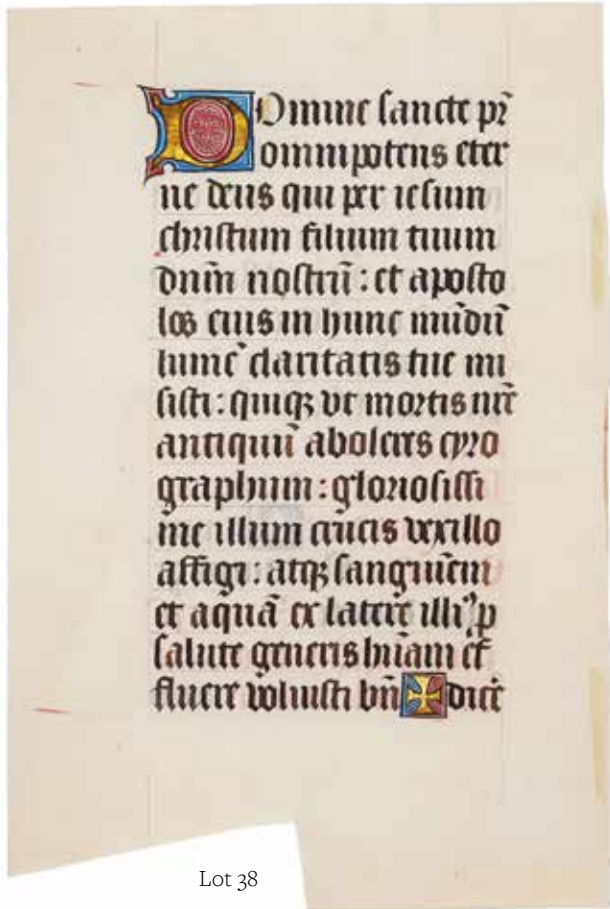 Domine sancte pr̄
omnipotens eter
ne deus qui per iesum
christum filium tuum
dnm̄ nostrū : et aposto
los eius in hunc mūdū
lumē claritatis tue mi
sisti : quiqꝫ vt mortis nr̄e
antiquū aboleres cyro
graphum : gloriosissi
me illum crucis vexillo
affigi : atqꝫ sanguinem
et aquā ex latere illiꝰ ꝓ
salute generis hūani ef
fluere voluisti bn̄ ✠ dice
Lot 38